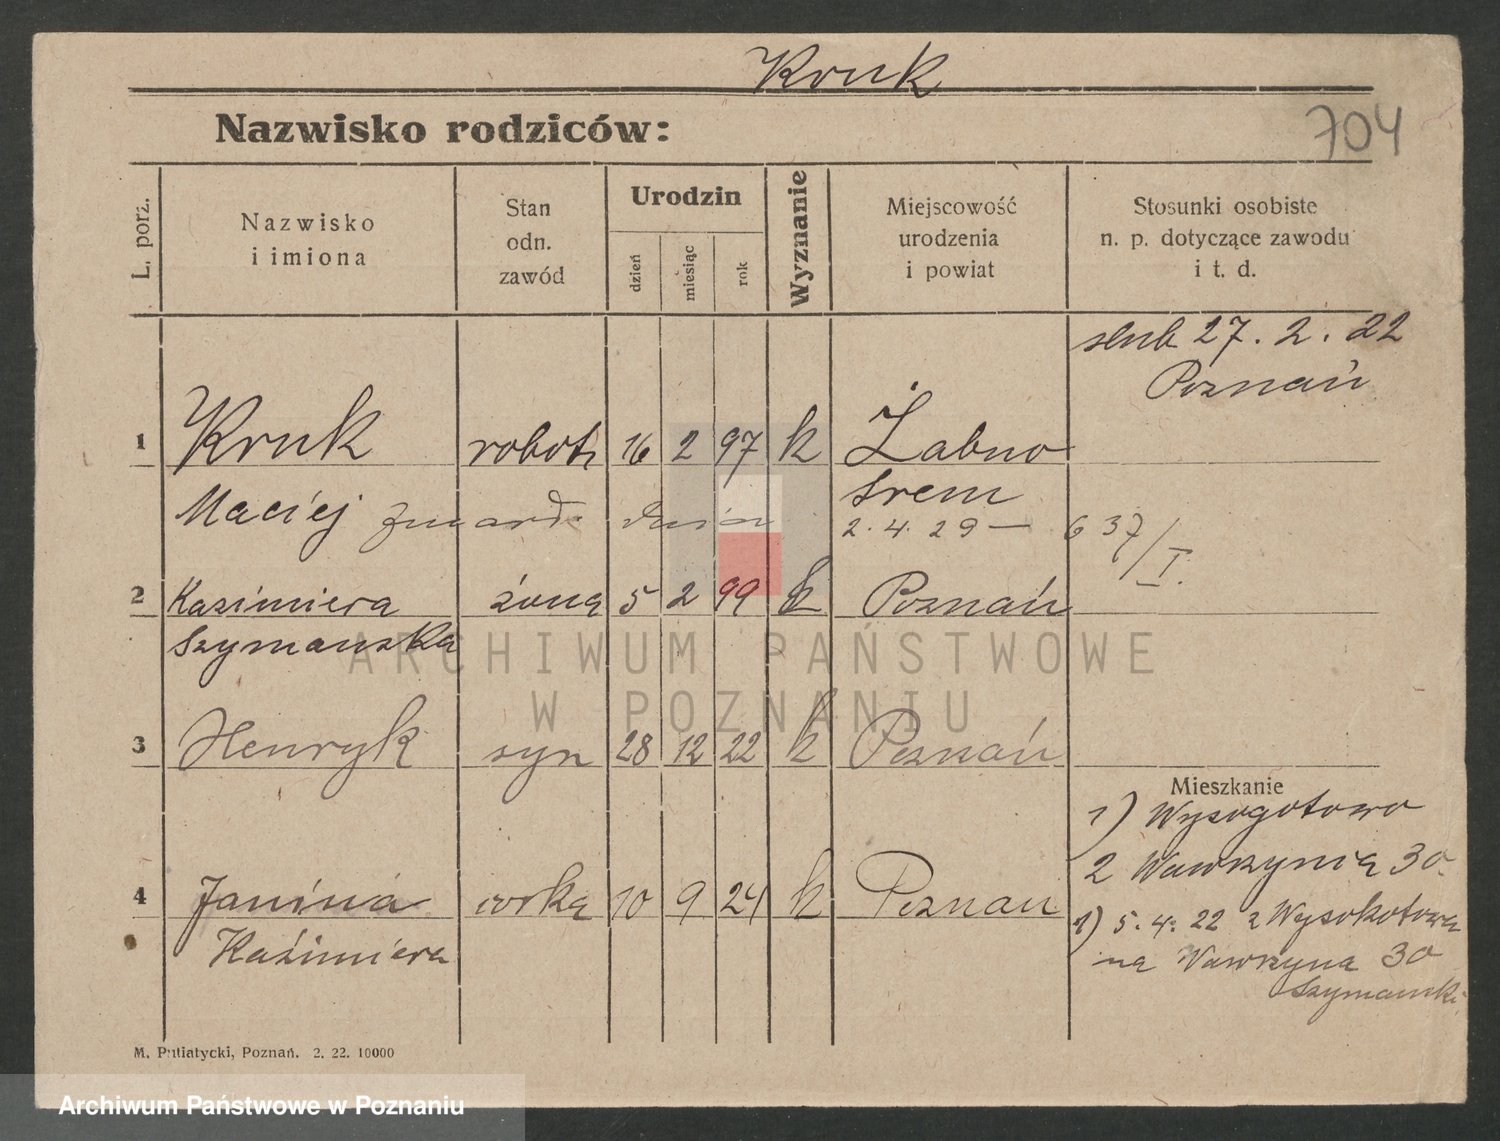 Kruk
Nazwisko rodziców:
704
L. porz.
Nazwisko
i imiona
Stan
odn.
zawód
Urodzin
dzień
miesiąc
rok
Wyznanie
Miejscowość
urodzenia
i powiat
Stosunki osobiste
n. p. dotyczące zawodu
i t. d.
slub 27. 2. 22
Poznań
1 Kruk robotn 16 2 97 k Żabno
Maciej zmarł dnia Srem
2. 4. 29 — 637/I.
2 Kazimiera żona 5 2 99 k Poznań
Szymanska
3 Henryk syn 28 12 22 k Poznań
Mieszkanie
1) Wysogotowo
2 Wawrzynia 30.
4 Janina corka 10 9 24 k Poznan
Kazimiera
1) 5. 4. 22 z Wysokotowa
na Wawrzyna 30
Szymanski
M. Putiatycki, Poznań. 2. 22. 10000
ARCHIWUM PAŃSTWOWE
W POZNANIU
Archiwum Państwowe w Poznaniu